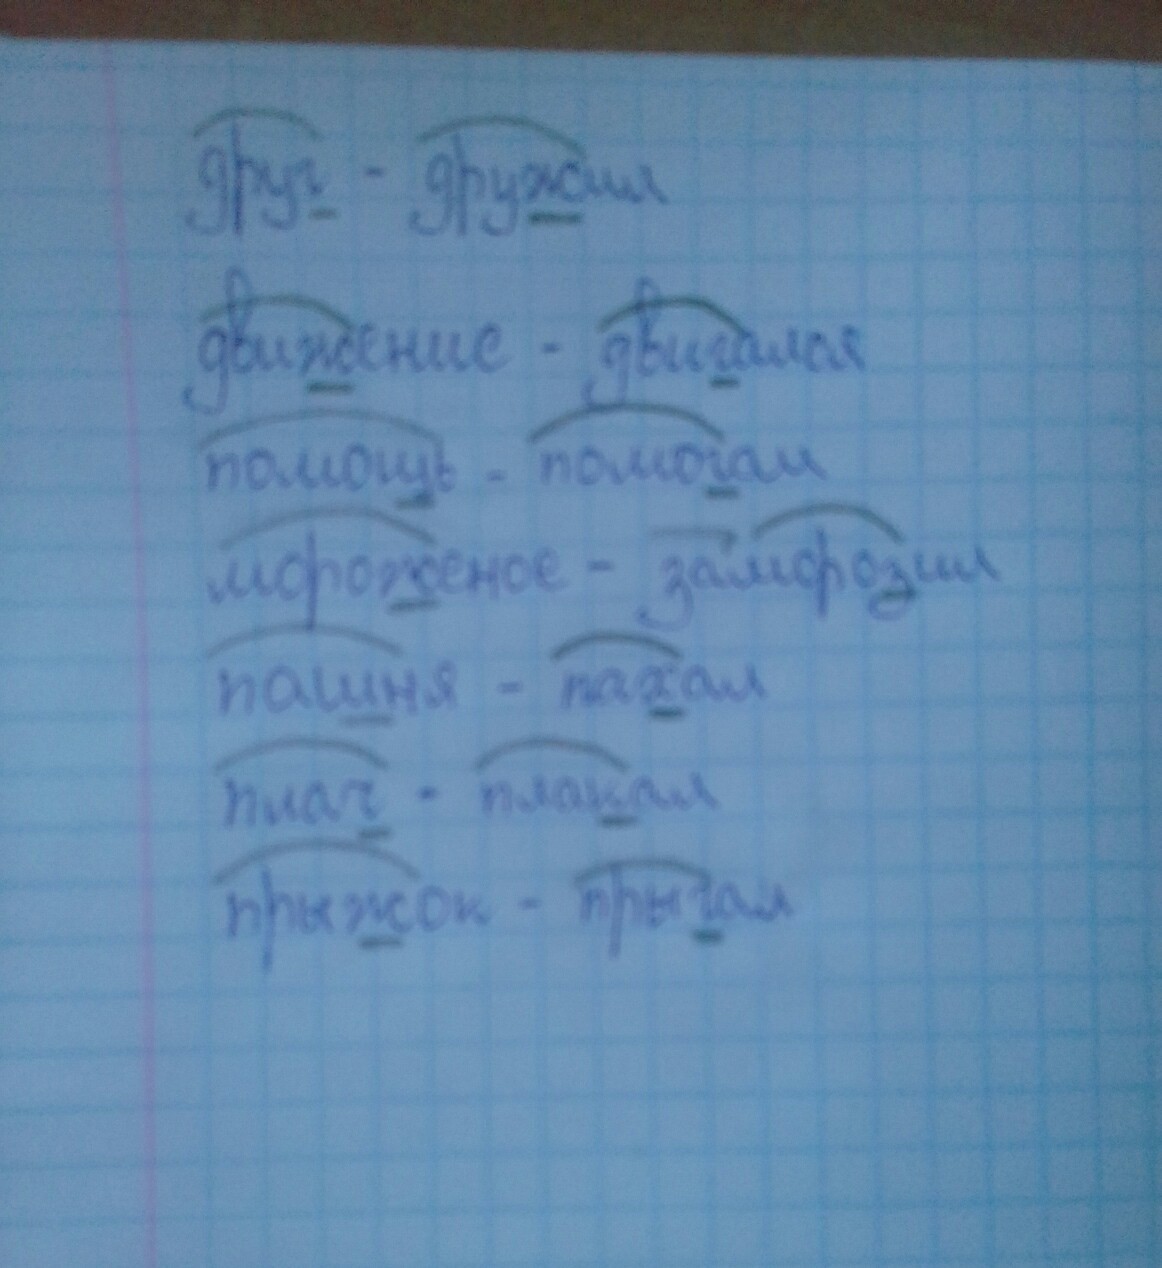 друг - дружил
движение - двигался
помощь - помогал
мороженое - заморозил
пашня - пахал
плач - плакал
прыжок - прыгал